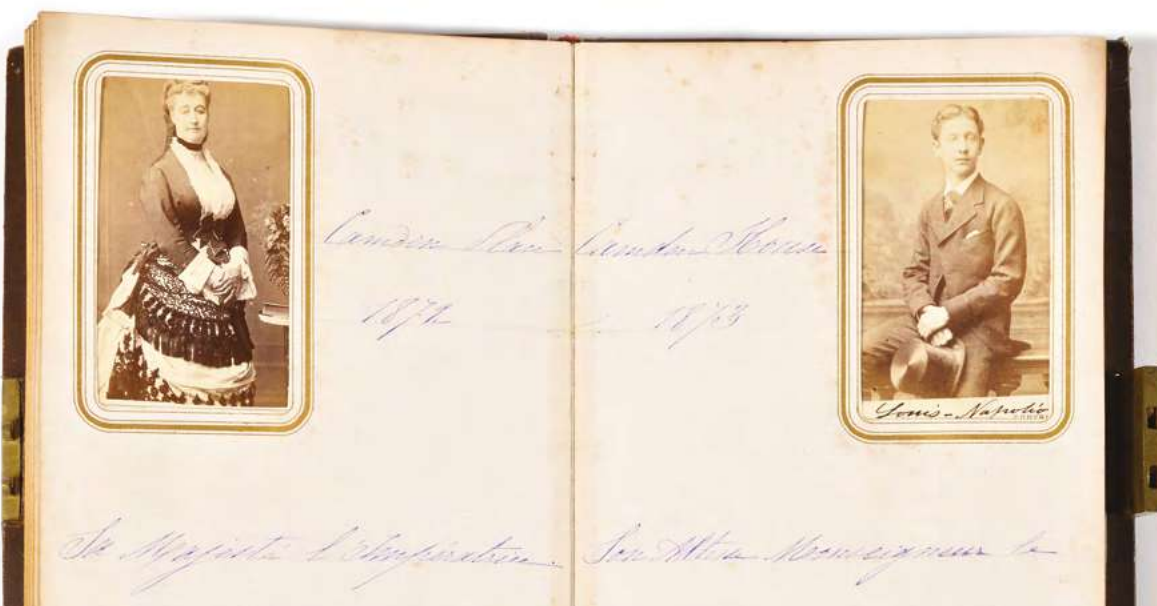 Camden Place
1872
Sa Majesté l'Impératrice.
Camden House
1873
Louis-Napoléo
Son Altesse Monseigneur le